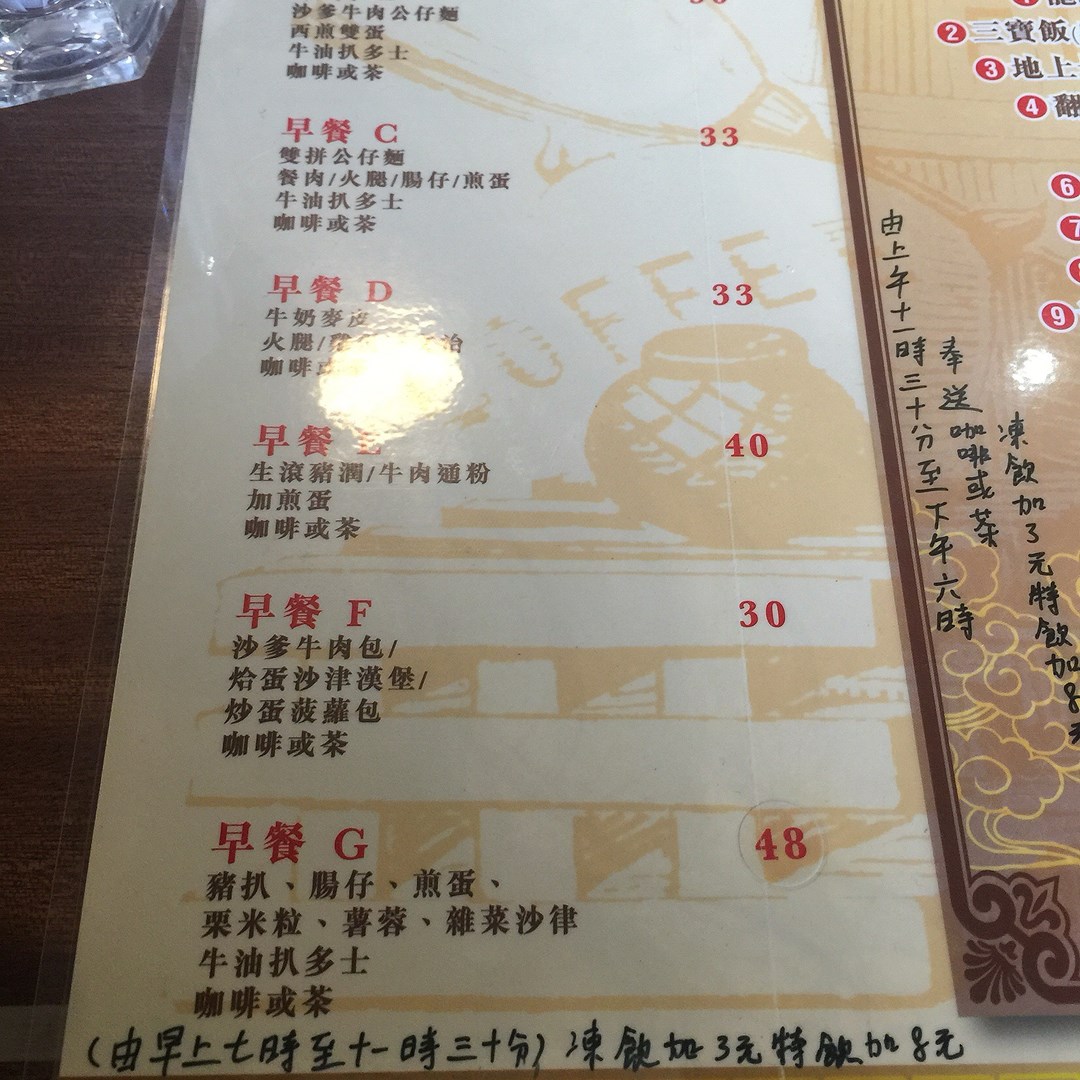 沙爹牛肉公仔麵
西煎雙蛋
牛油扒多士
咖啡或茶
早餐 C 33
雙拼公仔麵
餐肉/火腿/腸仔/煎蛋
牛油扒多士
咖啡或茶
早餐 D 33
牛奶麥皮
火腿/
咖啡
早餐 E 40
生滾豬潤/牛肉通粉
加煎蛋
咖啡或茶
早餐 F 30
沙爹牛肉包/
烚蛋沙津漢堡/
炒蛋菠蘿包
咖啡或茶
早餐 G 48
豬扒、腸仔、煎蛋、
栗米粒、薯蓉、雜菜沙律
牛油扒多士
咖啡或茶
(由早上七時至十一時三十分) 凍飲加3元特飲加8元
COFFEE
② 三寶飯
③ 地上
④ 翻
⑥
⑦
⑨
由上午十一時三十分至下午六時
奉送咖啡或茶
凍飲加3元特飲加8元